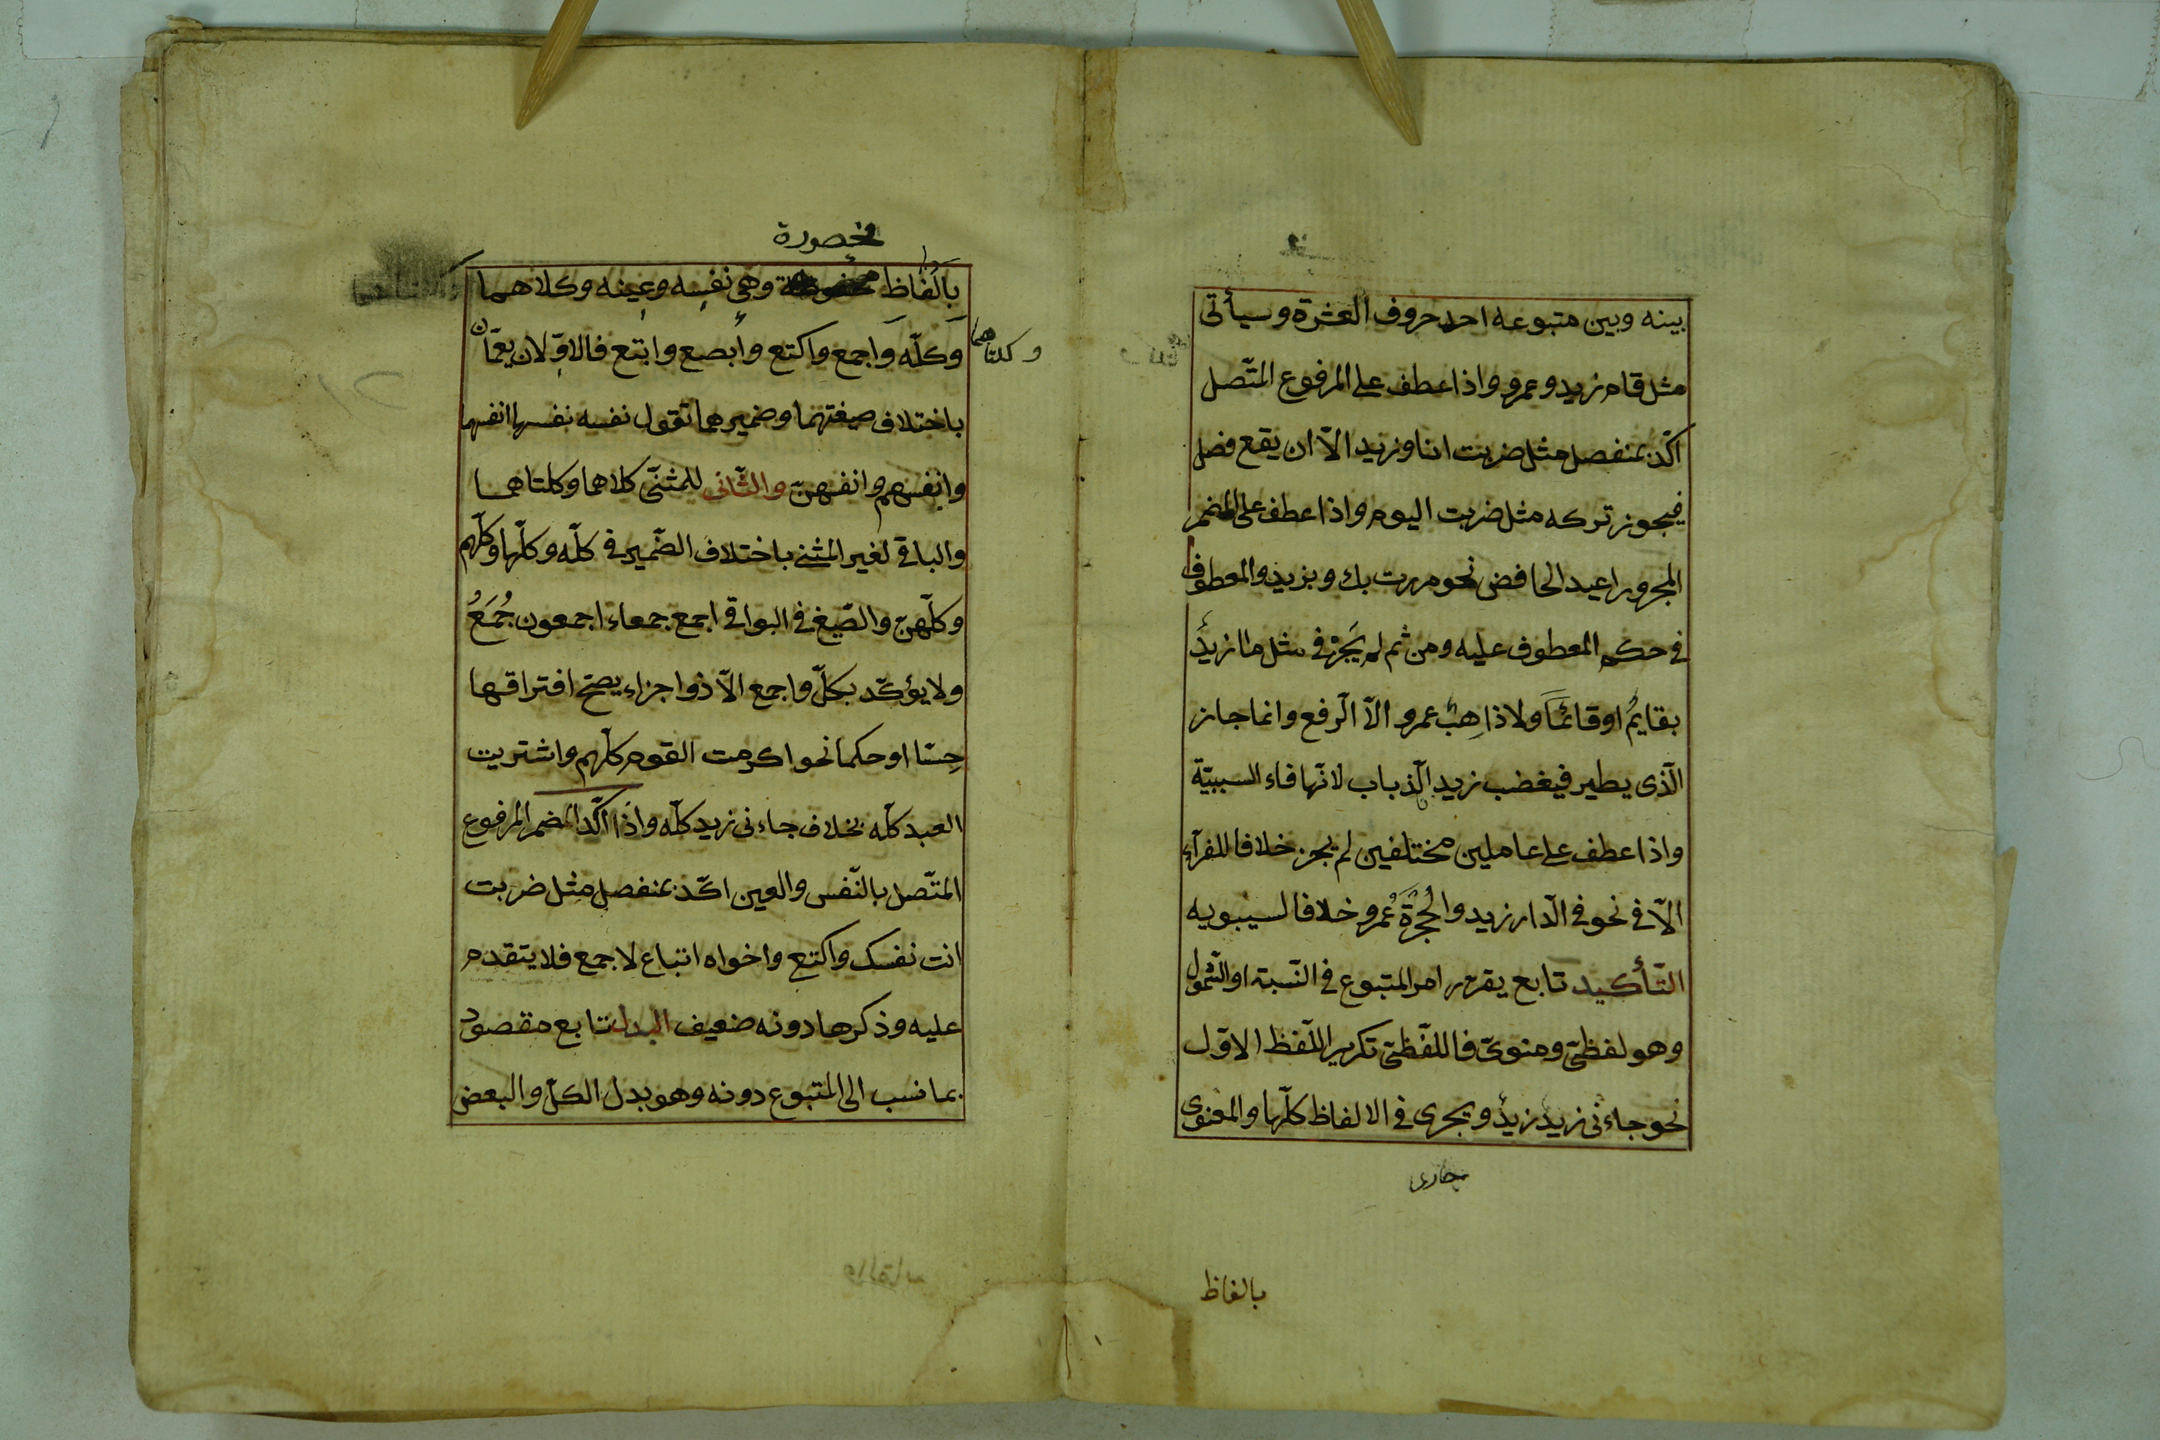 بينه وبين متبوعه احد حروف العشرة وسيأتى
مثل قام زيد وعمرو واذا عطف على المرفوع المتّصل
اكّد بمنفصل مثل ضربت انا وزيد الّا ان يقع فصل
فيجوز تركه مثل ضربت اليوم واذا عطف على المضمر
المجرور اعيد الخافض نحو مررت بك وبزيد والمعطوف
فى حكم المعطوف عليه ومن ثم لم يَجُز فى مثل ما زيدٌ
بقايمٍ اوقائمًا ولا ذاهب عمرو الّا الّرفع وانما جاز
الّذى يطير فيغضب زيد الّذباب لانّها فاء السببيّة
واذا عطف على عاملين مختلفين لم يجز خلافا للفرآء
الّا فى نحو فى الّدار زيد والحُجْرَةِ عُمرو خلافا لسيبويه
التّأكيد تابع يقرّر امر المتبوع فى النّسبة او الشّمول
وهو لفظىّ ومنوىّ فاللّفظىّ تكرير اللّفظ الاوّل
نحو جاءنى زيد زيدٌ ويجرى فى الالفاظ كلّها والمعنوى
بالفاظ
مخصورة
بالفاظ وهى نفسه وعينه وكلاهما
وكلتاهما
وكلّه واجمع واكتع وابصع وابتع فالاوّلان يعمّان
باختلاف صيغتهما وضميرهما تقول نفسه نفسها انفسهما
وانفسهم وانفسهنّ والثّانى للمثنّى كلاهما وكلتاهما
والباقى لغير المثنى باختلاف الضّمير فى كلّه وكلّها وكلّهم
وكلّهنّ والصّيغ فى البواقى اجمع جمعاء اجمعون جُمَعُ
ولا يؤكّد بكلّ واجمع الّا ذو اجزاء يصحّ افتراقها
حِسّا او حكما نحو اكرمت القوم كلّهم واشتريت
العبد كلّه بخلاف جاءنى زيد كلّه واذا اكّد المضمر المرفوع
المتّصل بالنّفس والعين اكّد بمنفصل مثل ضربت
انت نفسك واكتع واخواه اتباع لاجمع فلا يتقدم
عليه وذكرها دونه ضعيف البدل تابع مقصود
بما نسب الى المتبوع دونه وهو بدل الكلّ والبعض